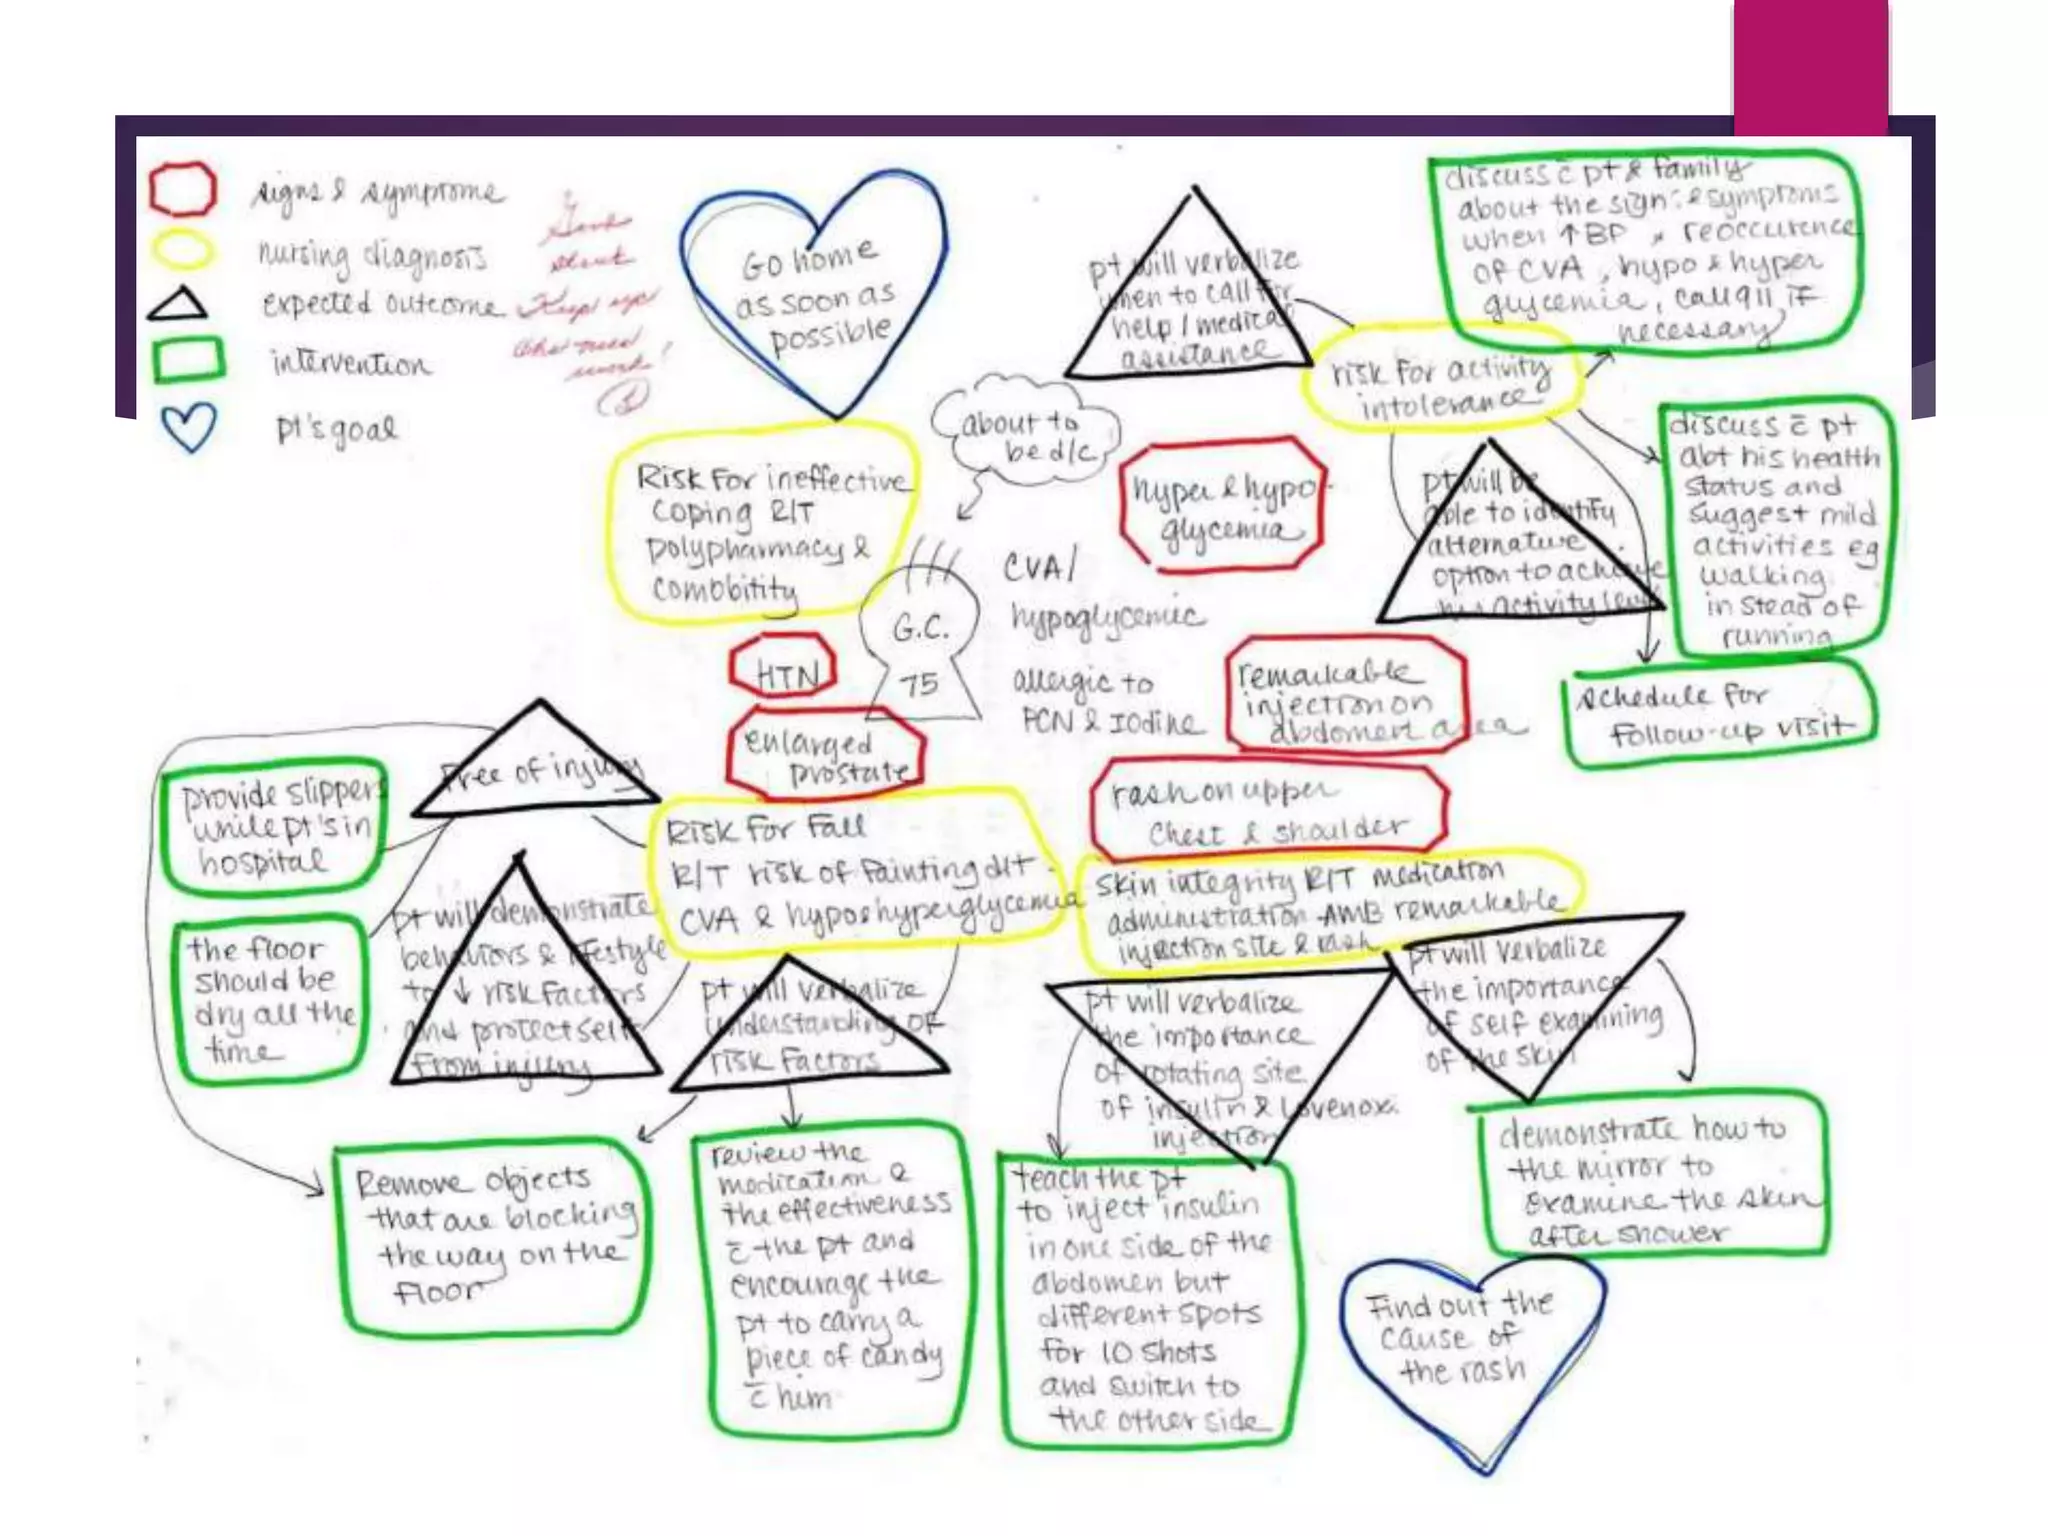 signs & symptoms
nursing diagnosis
expected outcome
intervention
pt's goal
Good
start
Keep up
the good
work!
Go home
as soon as
possible
pt will verbalize
when to call for
help / medical
assistance
discuss c̄ pt & family
about the signs & symptoms
when ↑BP, reoccurence
of CVA, hypo & hyper
glycemia, call 911 if
necessary
risk for activity
intolerance
about to
be d/c
discuss c̄ pt
abt his health
status and
suggest mild
activities eg
walking
in stead of
running
Risk for ineffective
coping R/T
polypharmacy &
comobitity
hyper & hypo-
glycemia
pt will be
able to identify
alternative
option to achieve
his activity level
G.C.
75
CVA/
hypoglycemic
allergic to
PCN & Iodine
HTN
enlarged
prostate
remarkable
injection on
abdoment area
schedule for
follow-up visit
Free of injury
provide slippers
while pt's in
hospital
Risk for Fall
R/T risk of fainting d/t
CVA & hypo & hyperglycemia
rash on upper
chest & shoulder
skin integrity R/T medication
administration AMB remarkable
injection site & rash
the floor
should be
dry all the
time
pt will demonstrate
behaviors & lifestyle
to ↓ risk factors
and protect self
from injury
pt will verbalize
understanding of
risk factors
pt will verbalize
the importance
of rotating site
of insulin & Lovenox
injection
pt will verbalize
the importance
of self examining
of the skin
Remove objects
that are blocking
the way on the
floor
review the
medication &
the effectiveness
c̄ the pt and
encourage the
pt to carry a
piece of candy
c̄ him
teach the pt
to inject insulin
in one side of the
abdomen but
different spots
for 10 shots
and switch to
the other side
demonstrate how to
the mirror to
examine the skin
after shower
Find out the
cause of
the rash